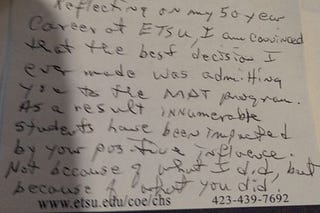 Reflecting on my 50 year
career at ETSU, I am convinced
that the best decision I
ever made was admitting
you to the MAT program.
As a result innumerable
students have been impacted
by your positive influence.
Not because of what I did, but
because of what you did.
www.etsu.edu/coe/chs 423-439-7692